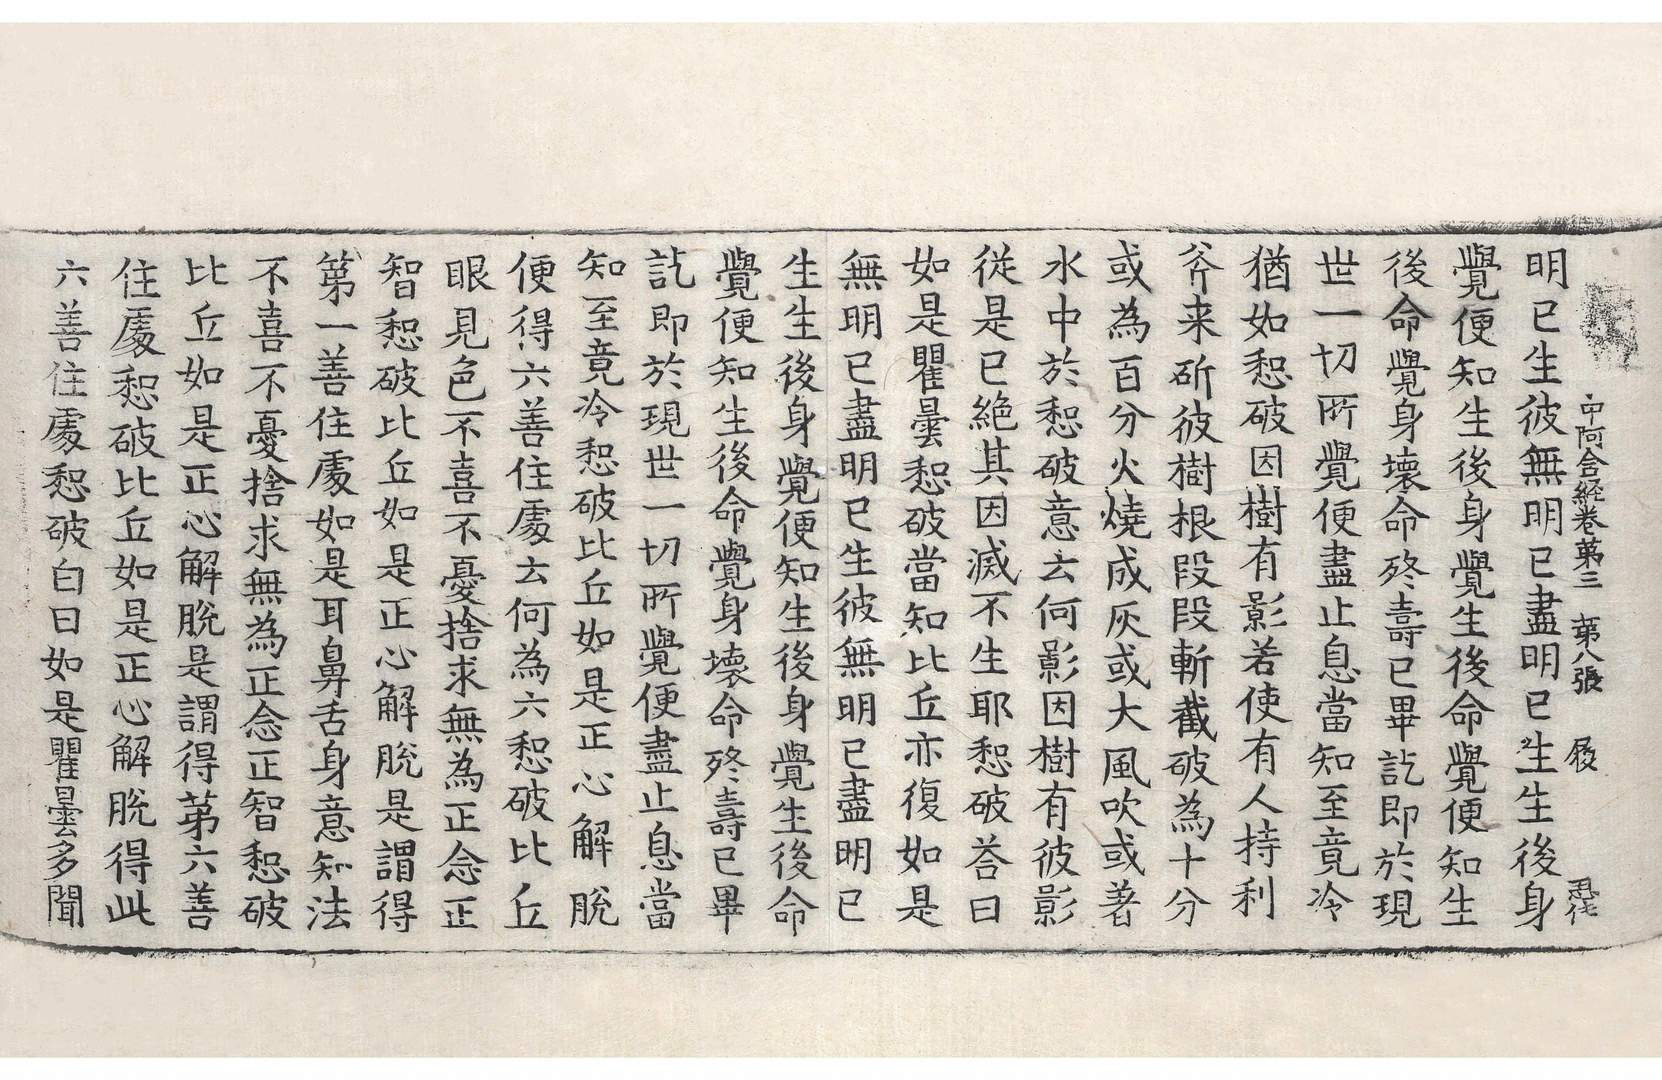 中阿含経卷第三 第八張 履
明已生彼無明已盡明已生生後身
覺便知生後身覺生後命覺便知生
後命覺身壞命終壽已畢訖即於現
世一切所覺便盡止息當知至竟冷
猶如惒破因樹有影若使有人持利
斧来斫彼樹根段段斬截破為十分
或為百分火燒成灰或大風吹或著
水中於惒破意云何影因樹有彼影
從是已絶其因滅不生耶惒破荅曰
如是瞿曇惒破當知比丘亦復如是
無明已盡明已生彼無明已盡明已
生生後身覺便知生後身覺生後命
覺便知生後命覺身壞命終壽已畢
訖即於現世一切所覺便盡止息當
知至竟冷惒破比丘如是正心解脫
便得六善住處云何為六惒破比丘
眼見色不喜不憂捨求無為正念正
智惒破比丘如是正心解脫是謂得
第一善住處如是耳鼻舌身意知法
不喜不憂捨求無為正念正智惒破
比丘如是正心解脫是謂得第六善
住處惒破比丘如是正心解脫得此
六善住處惒破白曰如是瞿曇多聞